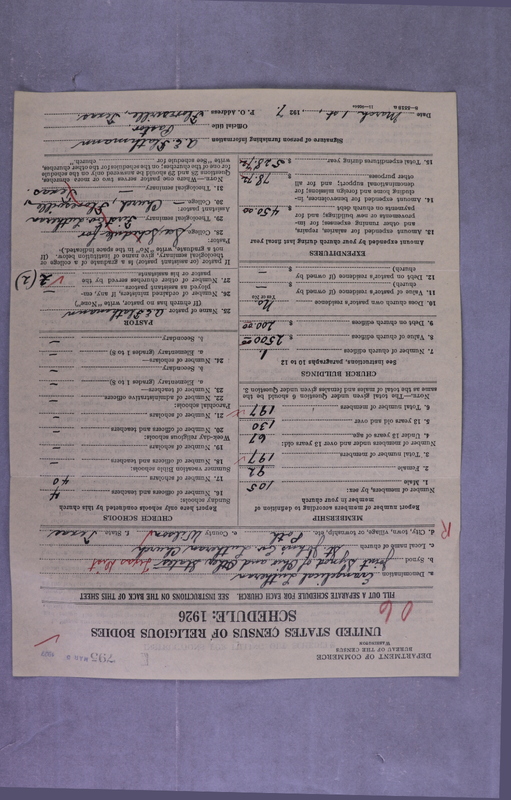 DEPARTMENT OF COMMERCE
BUREAU OF THE CENSUS
WASHINGTON
E 795
UNITED STATES CENSUS OF RELIGIOUS BODIES
SCHEDULE: 1926
06
FILL OUT A SEPARATE SCHEDULE FOR EACH CHURCH. SEE INSTRUCTIONS ON THE BACK OF THIS SHEET
a. Denomination Evangelical Lutheran
b. Synod Joint Synod of Ohio and Other States Texas Dist
c. Local name of church St. John's Ev. Lutheran Church
d. City, town, village, or township, etc. Poth e. County Wilson f. State Texas
R
MEMBERSHIP
Report number of members according to definition of
member in your church
Number of members, by sex:
1. Male 105
2. Female 92
3. Total number of members 197
Number of members under and over 13 years old:
4. Under 13 years of age 67
5. 13 years old and over 130
6. Total number of members 197
Note.—The total given under Question 6 should be the
same as the total of males and females given under Question 3.
CHURCH BUILDINGS
See Instructions, paragraphs 10 to 12
7. Number of church edifices 1
8. Value of church edifices $ 2500.00
9. Debt on church edifices $ 200.00
10. Does church own pastor's residence No
Yes or No
11. Value of pastor's residence (if owned by
church) $ —
12. Debt on pastor's residence (if owned by
church) $ —
EXPENDITURES
Amount expended by your church during last fiscal year
13. Amount expended for salaries, repairs,
and other running expenses; for improvements or new buildings; and for
payments on church debt $ 450.00
14. Amount expended for benevolences, including home and foreign missions; for
denominational support; and for all
other purposes $ 78.72
15. Total expenditures during year $ 528.72
CHURCH SCHOOLS
Report here only schools conducted by this church
Sunday schools:
16. Number of officers and teachers 4
17. Number of scholars 40
Summer vacation Bible schools:
18. Number of officers and teachers —
19. Number of scholars —
Week-day religious schools:
20. Number of officers and teachers —
21. Number of scholars —
Parochial schools:
22. Number of administrative officers —
23. Number of teachers—
a. Elementary (grades 1 to 8) —
b. Secondary —
24. Number of scholars—
a. Elementary (grades 1 to 8) —
b. Secondary —
PASTOR
25. Name of pastor
(If church has no pastor, write "None")
26. Number of ordained ministers, if any, employed as assistant pastors —
27. Number of other churches served by the
pastor or his assistants 2 (2)
If pastor (or assistant pastor) is a graduate of a college or
theological seminary, give name of institution below. (If
not a graduate, write "No" in the space indicated.)
Pastor:
28. College See schedule for
29. Theological seminary First Ev. Lutheran
Assistant pastor:
30. College Church, Floresville
31. Theological seminary Texas
Note.—Where one pastor serves two or more churches,
Questions 25 and 28 should be answered only on the schedule
for one of the churches; on the schedules for the other churches,
write "See schedule for church."
Signature of person furnishing information
Official title Pastor
Date March 1st, 1927. P. O. Address Floresville, Texas